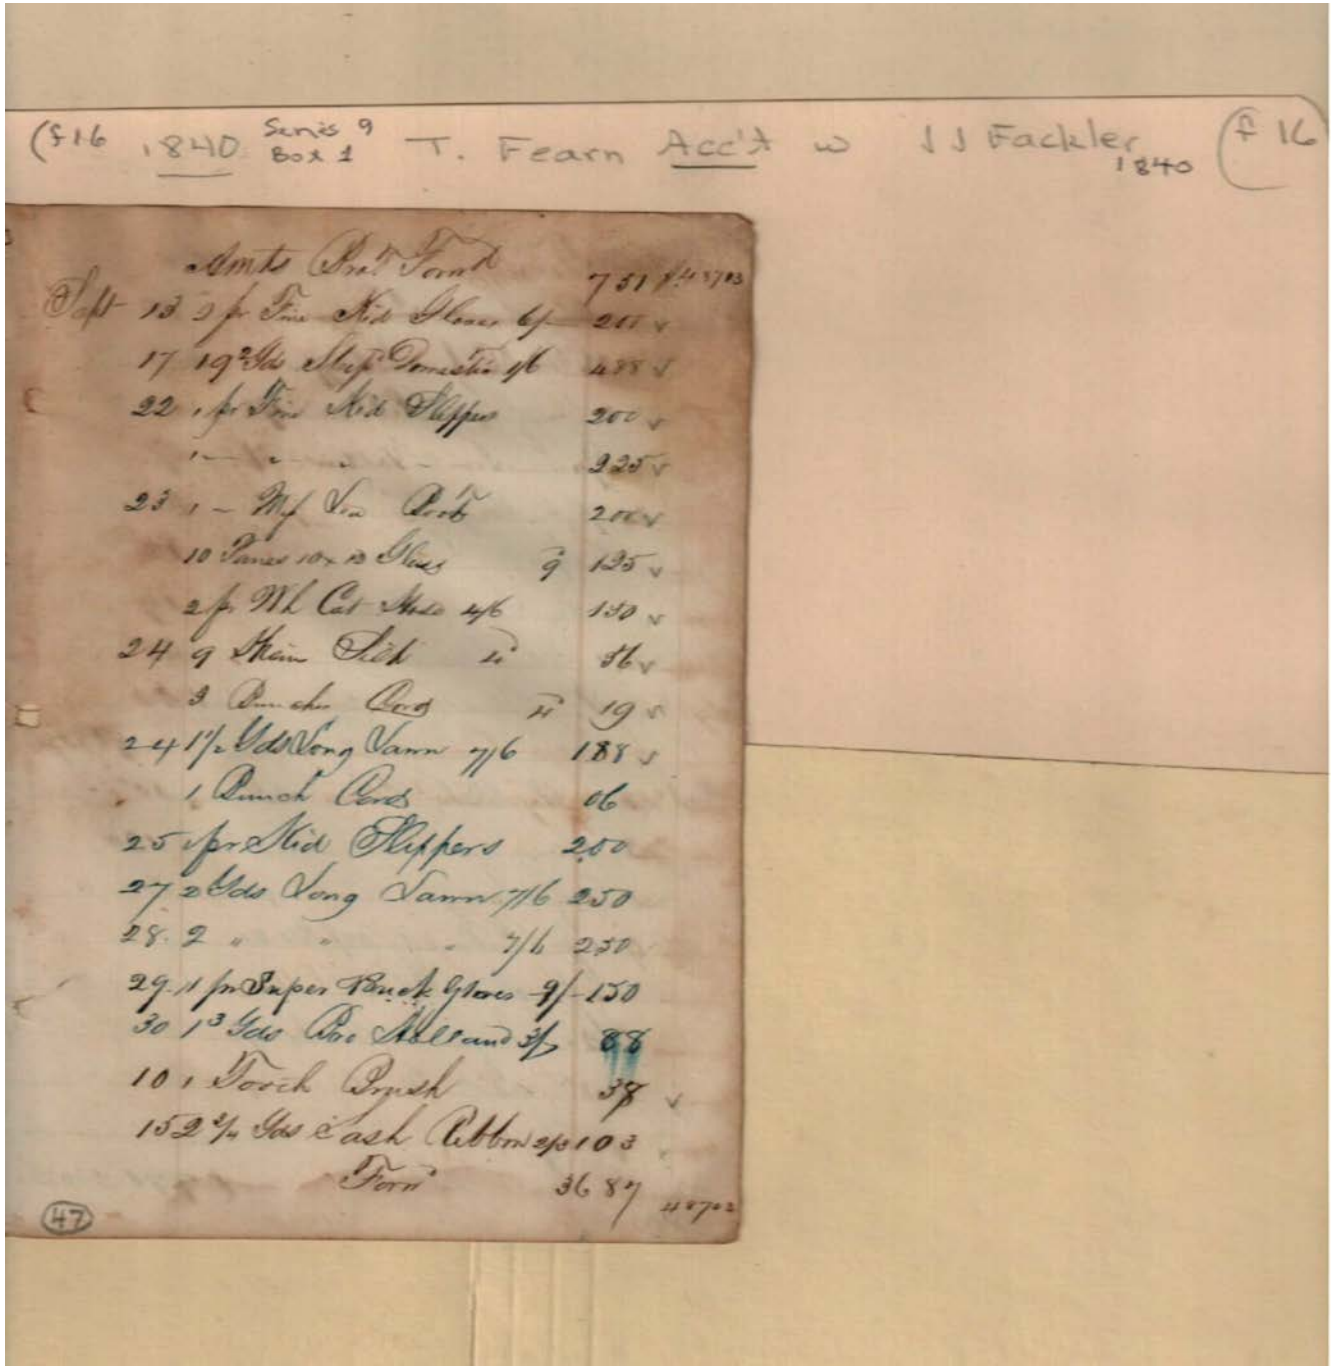 (f16 1840 Series 9 Box 1 T. Fearn Acc't w J J Fackler 1840 (f 16
Amts Bro't Forw'd 7 51 $487 03
Sept 13 2 pr Fine Kid Gloves 6/- 2 00
17 19 2 Yds Domestic 1/6 4 88
22 1 pr Fine Kid Slippers 2 00
1 " " " " 2 25
23 1 - 2 00
10 Panes 10 x 12 Glass 1 25
2 pr Wh Cot Hose 4/6 1 50
24 9 Skeins Silk 4 36
3 Bunches Cord 19
24 1 1/2 Yds Long Lawn 7/6 1 88
1 Bunch Cord 06
25 1 pr Kid Slippers 2 00
27 2 Yds Long Lawn 7/6 2 50
28. 2 " " " 7/6 2 50
29. 1 pr Super Buck Gloves 9/- 1 50
30 1 3 Yds Bro Holland 3/ 88
10 1 Tooth Brush 38
15 2 3/4 Yds Sash Ribbon 2/3 1 03
Forw'd 36 87 487 03
47